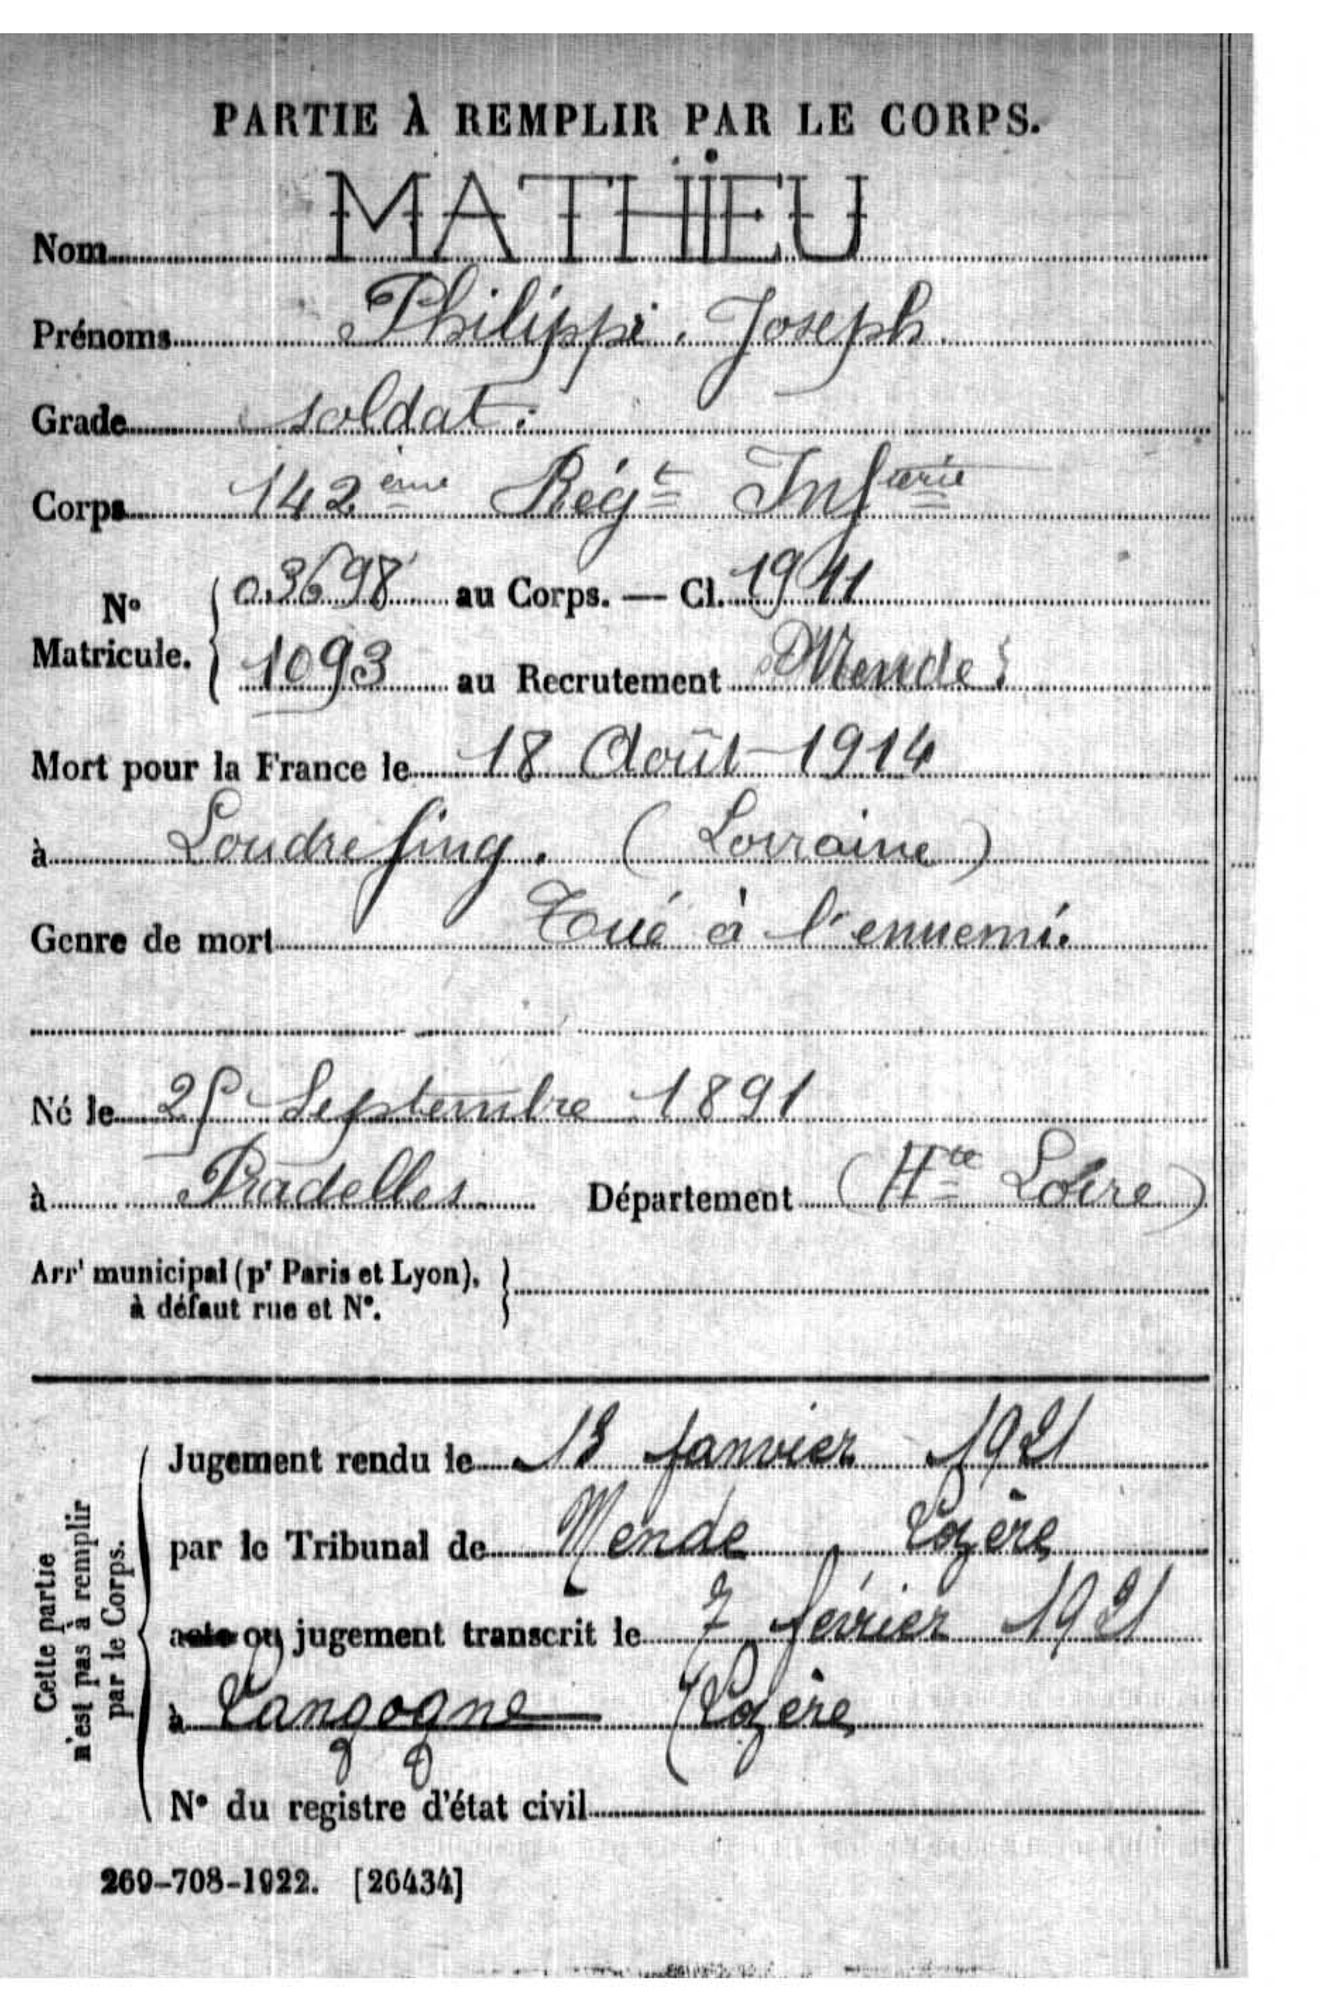 PARTIE À REMPLIR PAR LE CORPS.
Nom MATHIEU
Prénoms Philippe, Joseph
Grade soldat.
Corps 142 ème Régt Infterie
No Matricule. 03698 au Corps. — Cl. 1911
1093 au Recrutement Mende
Mort pour la France le 18 Août 1914
à Loudrefing. (Lorraine)
Genre de mort Tué à l'ennemi.
Né le 25 Septembre 1891
à Pradelles Département (Hte Loire)
Arrt municipal (pr Paris et Lyon),
à défaut rue et No.
Cette partie
n'est pas à remplir
par le Corps.
Jugement rendu le 13 janvier 1921
par le Tribunal de Mende Lozère
acte ou jugement transcrit le 7 février 1921
à Langogne (Lozère
No du registre d'état civil
269-708-1922. [26434]